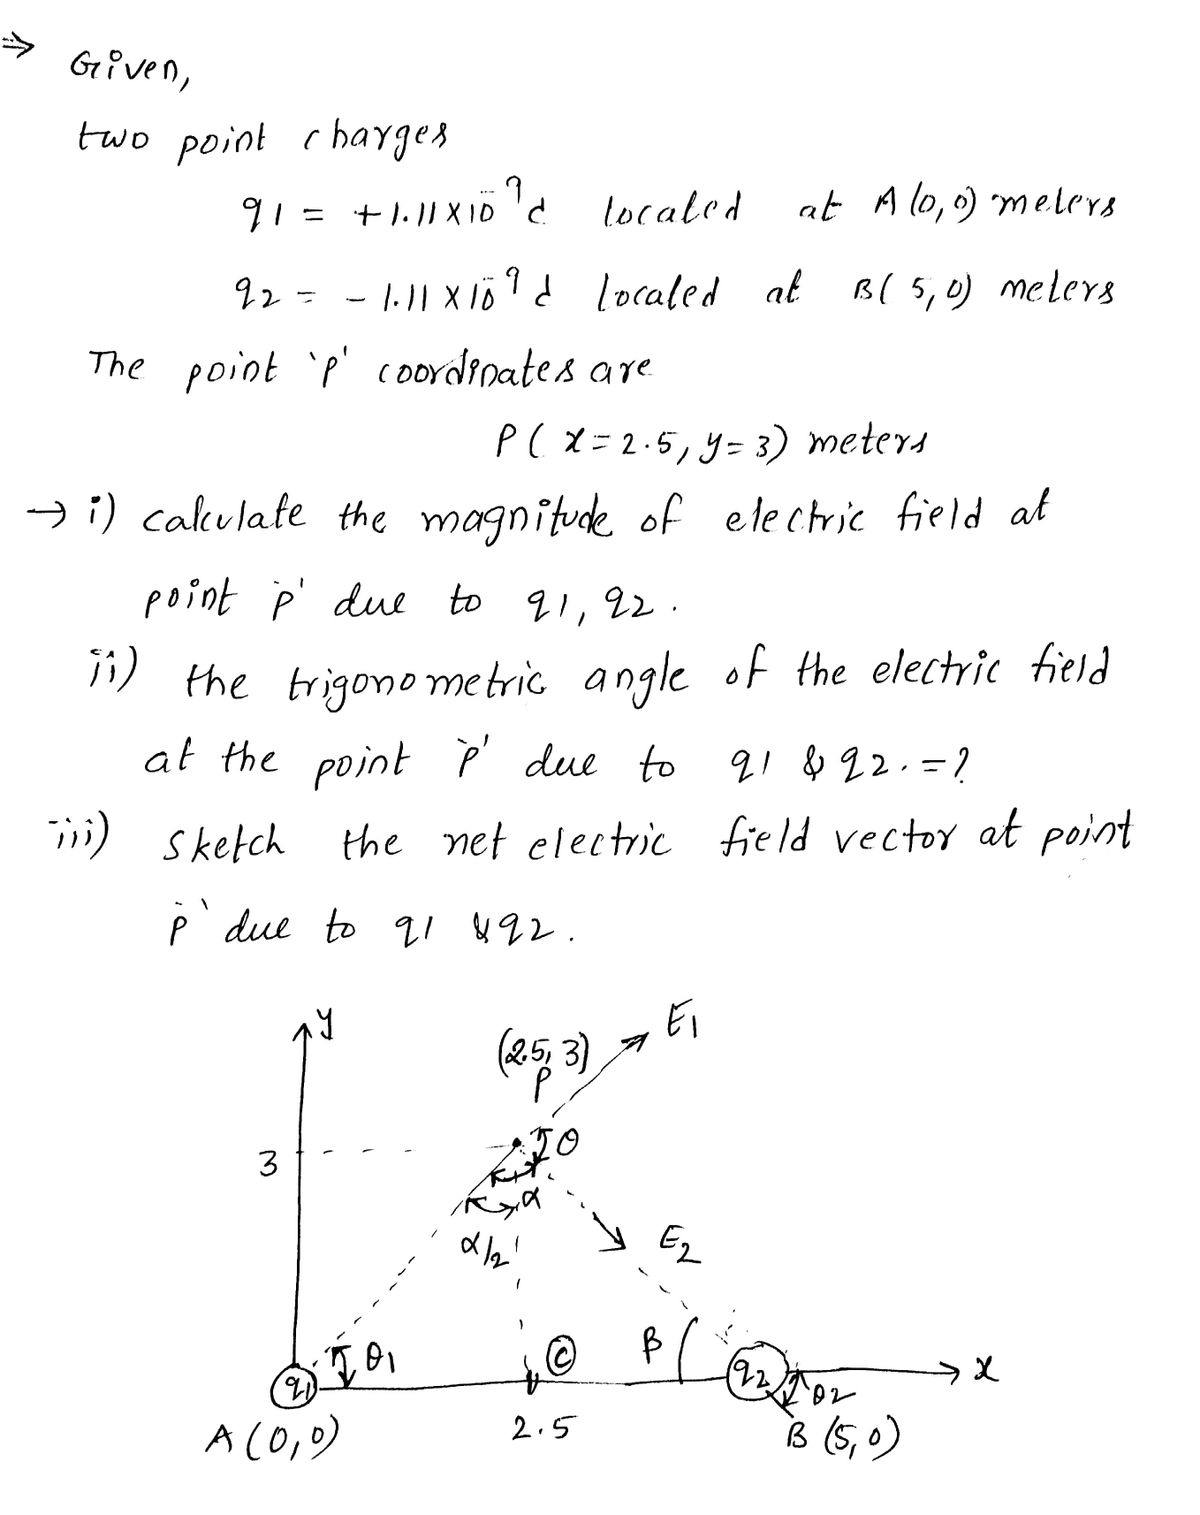 ⇒ Given,
two point charges
q1 = +1.11×10⁻⁹c located at A(0,0) meters
q2 = -1.11×10⁻⁹c located at B(5,0) meters
The point 'p' coordinates are
P(x=2.5, y=3) meters
→ i) calculate the magnitude of electric field at
point 'p' due to q1, q2.
ii) the trigonometric angle of the electric field
at the point 'p' due to q1 & q2. = ?
iii) Sketch the net electric field vector at point
'p' due to q1 & q2.
y
E1
(2.5, 3)
P
3
θ
α
α/2
E2
θ1
C
β
q1
q2
x
θ2
A(0,0)
2.5
B(5,0)